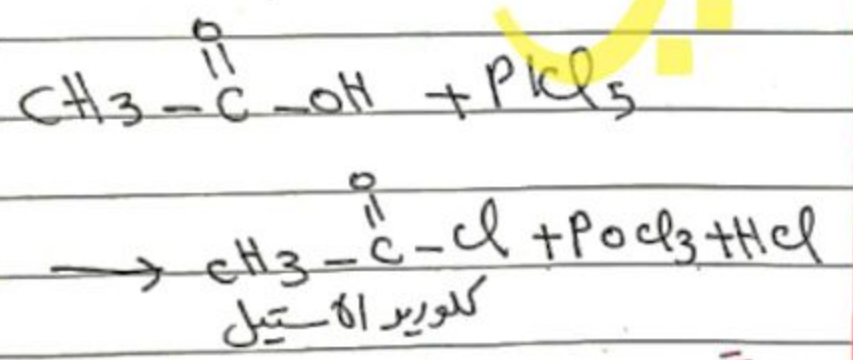 O
||
CH3 - C - OH + PCl5
O
||
→ CH3 - C - Cl + POCl3 + HCl
كلوريد الاستيل